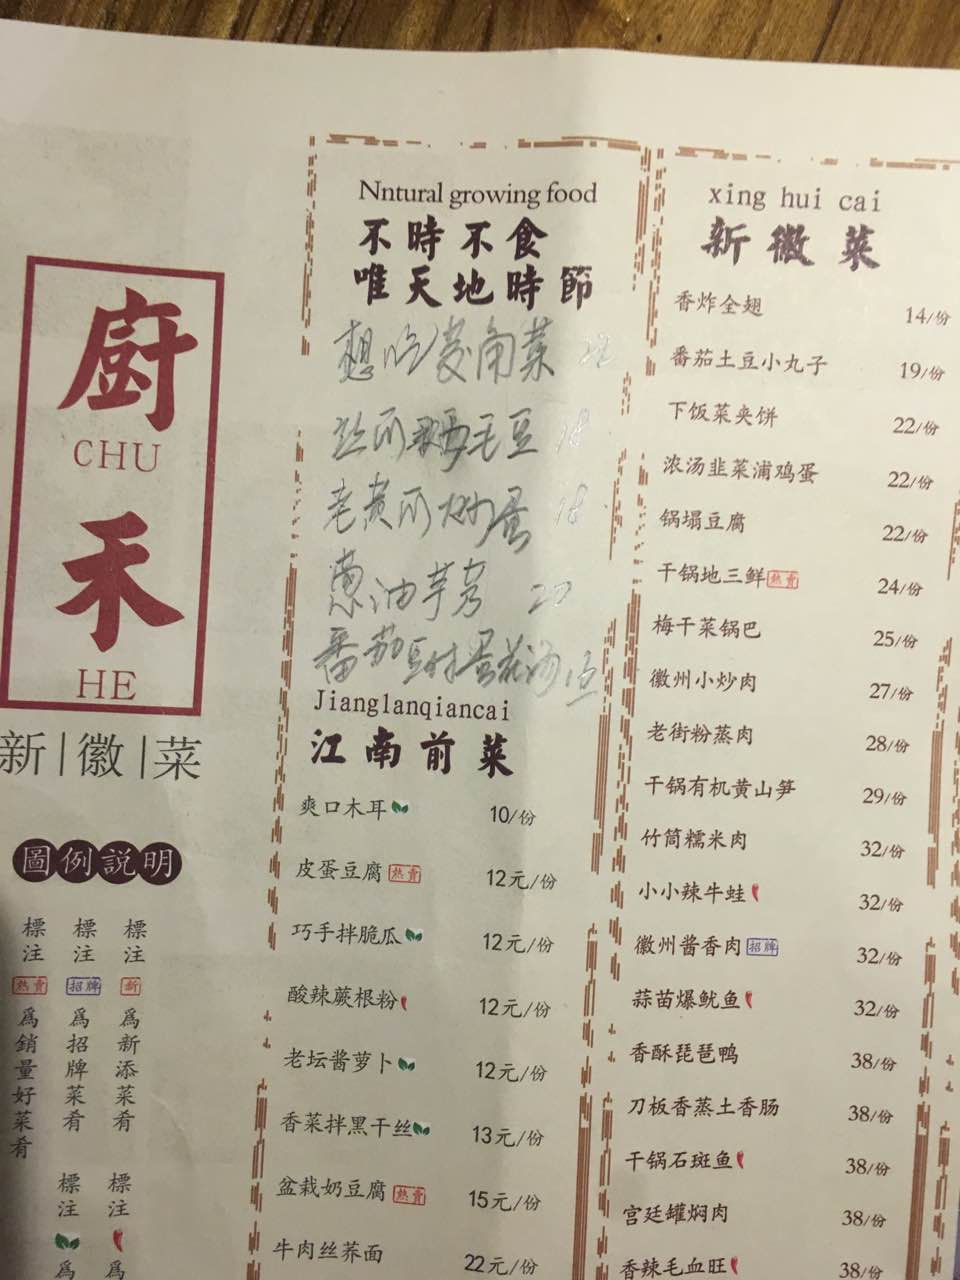 廚
CHU
禾
HE
新|徽|菜
圖例説明
標注 熱賣 爲銷量好菜肴
標注 招牌 爲招牌菜肴
標注 新 爲新添菜肴
標注 爲
標注 爲
Nntural growing food
不時不食
唯天地時節
想吃菱角菜 22
丝瓜毛豆 18
老黄瓜炒蛋 18
葱油芋艿 20
番茄蛋花汤
Jianglanqiancai
江南前菜
爽口木耳 10/份
皮蛋豆腐 熱賣 12元/份
巧手拌脆瓜 12元/份
酸辣蕨根粉 12元/份
老坛酱萝卜 12元/份
香菜拌黑干丝 13元/份
盆栽奶豆腐 熱賣 15元/份
牛肉丝荞面 22元/份
xing hui cai
新徽菜
香炸全翅 14/份
番茄土豆小丸子 19/份
下饭菜夹饼 22/份
浓汤韭菜浦鸡蛋 22/份
锅塌豆腐 22/份
干锅地三鲜 熱賣 24/份
梅干菜锅巴 25/份
徽州小炒肉 27/份
老街粉蒸肉 28/份
干锅有机黄山笋 29/份
竹筒糯米肉 32/份
小小辣牛蛙 32/份
徽州酱香肉 招牌 32/份
蒜苗爆鱿鱼 32/份
香酥琵琶鸭 38/份
刀板香蒸土香肠 38/份
干锅石斑鱼 38/份
宫廷罐焖肉 38/份
香辣毛血旺 38/份